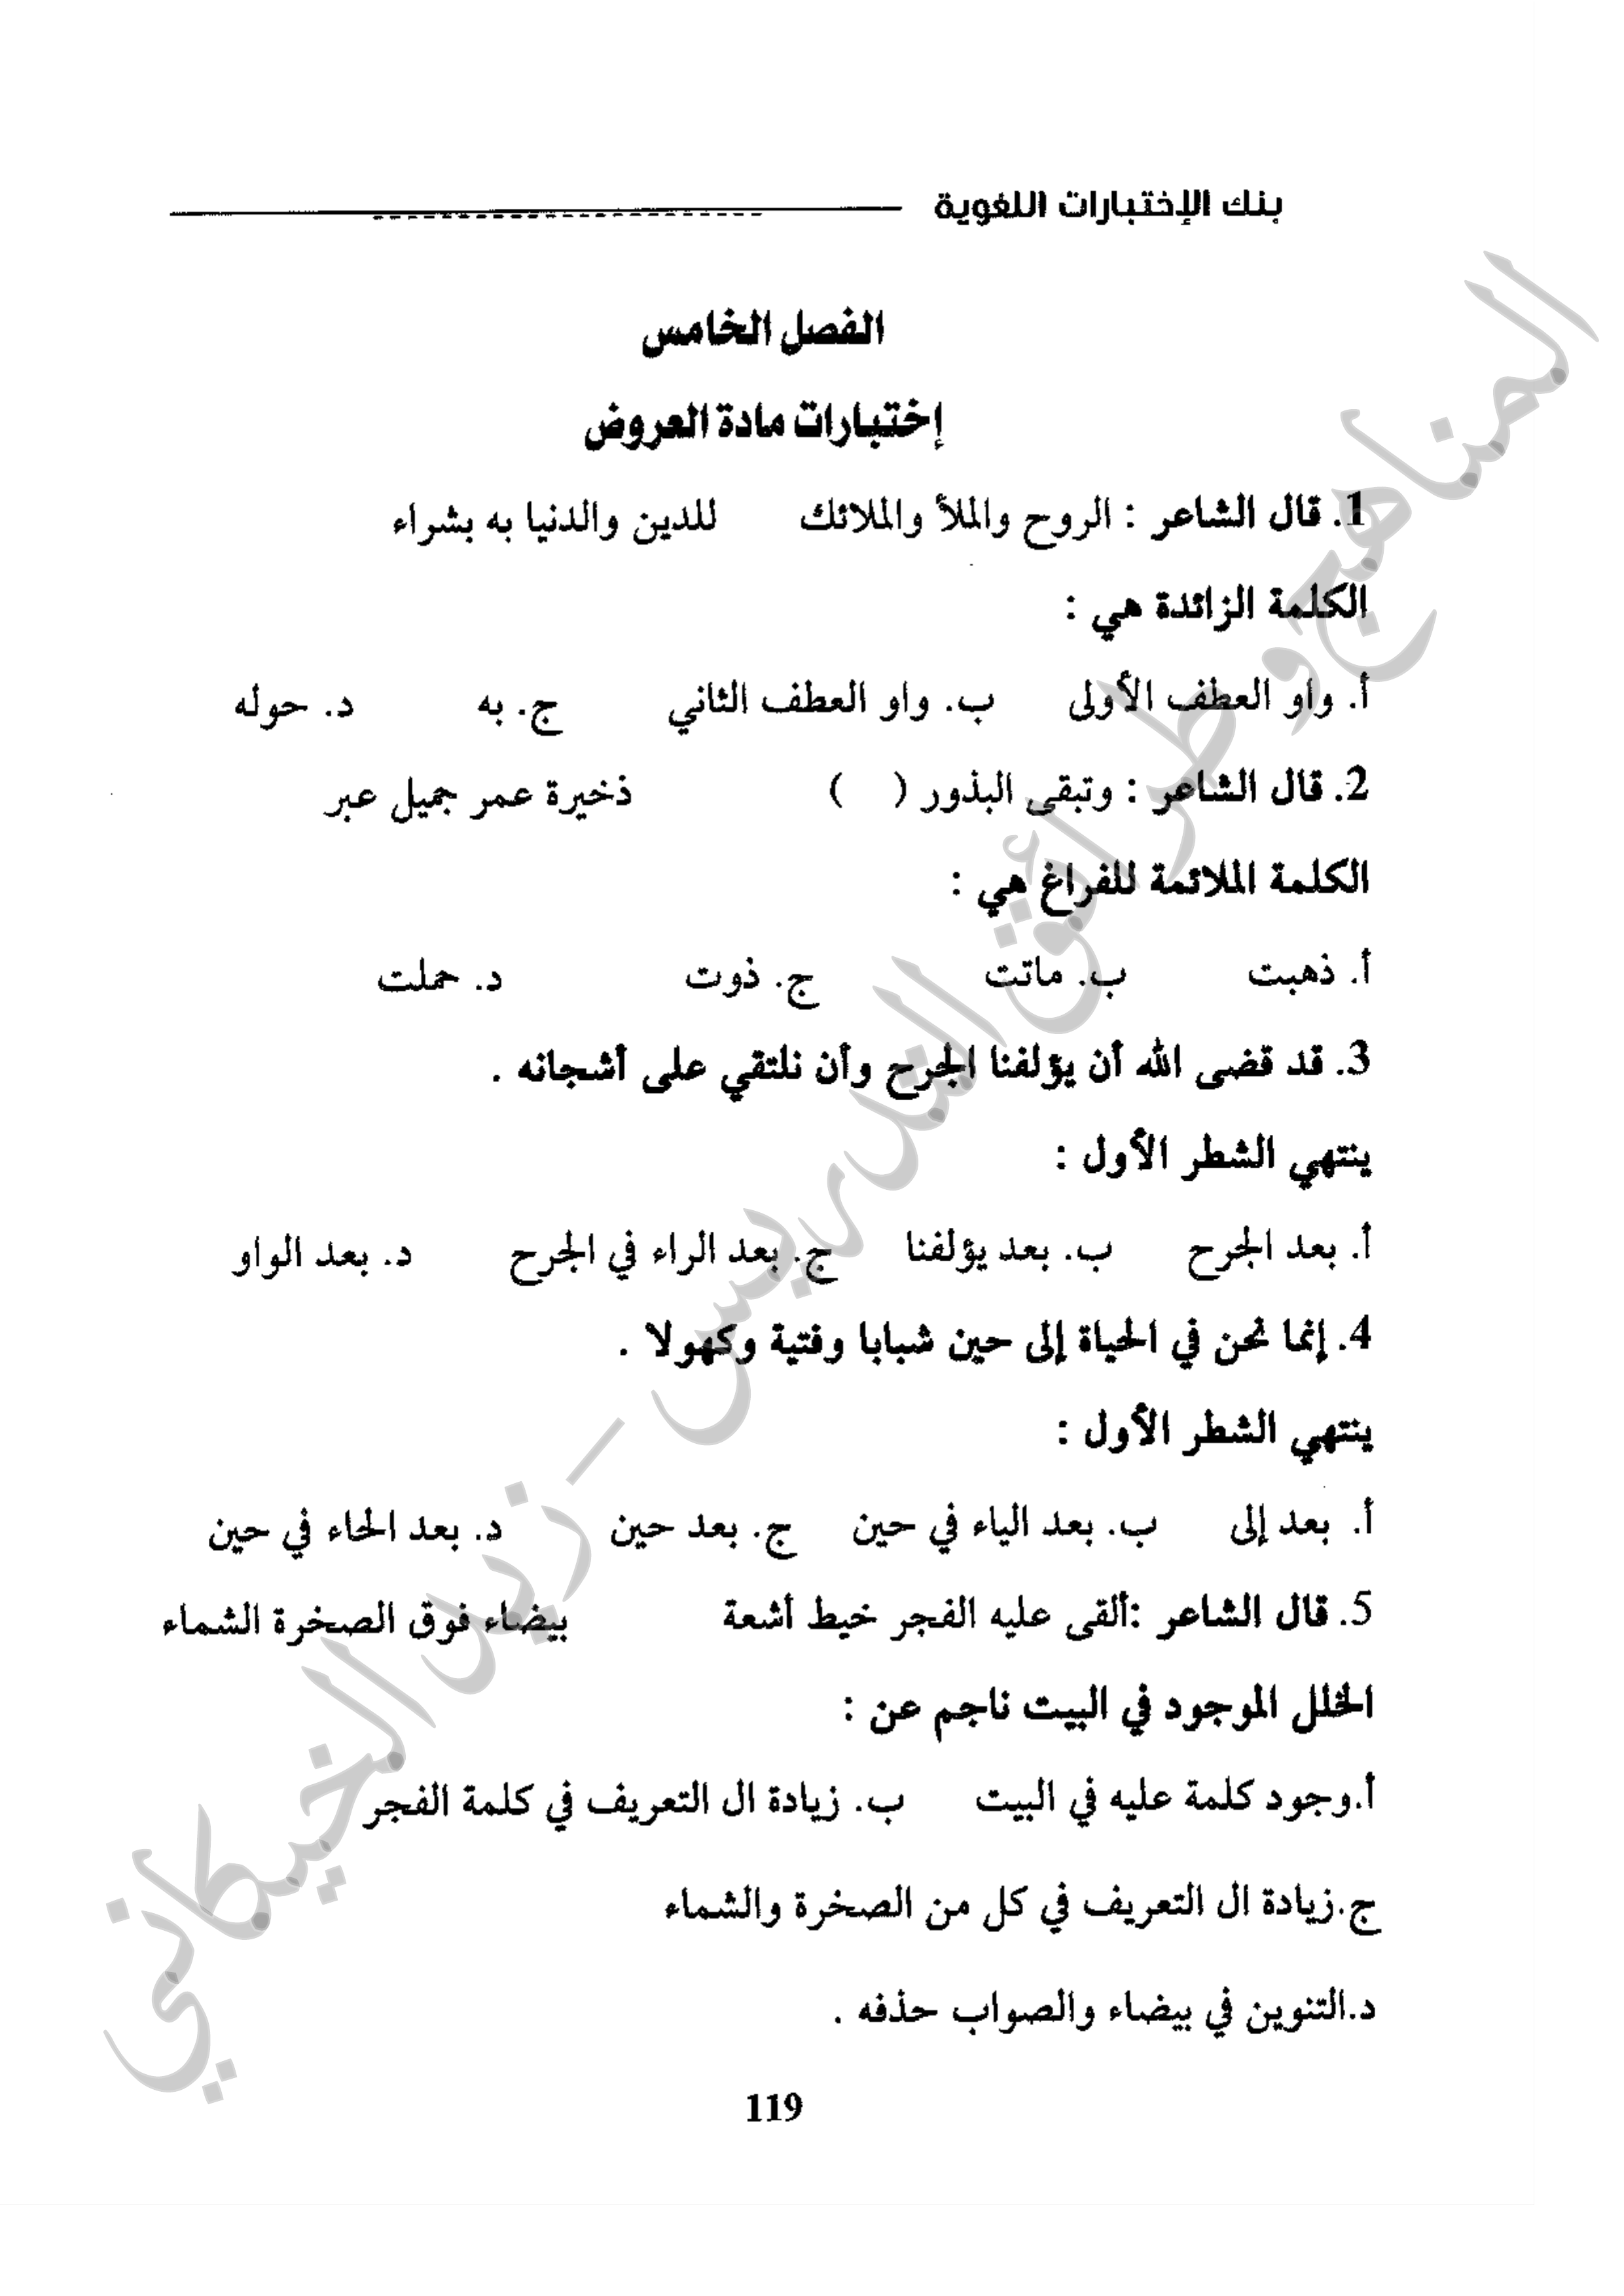 بنك الإختبارات اللغوية
الفصل الخامس
إختبارات مادة العروض
1. قال الشاعر : الروح والملأ والملائك للدين والدنيا به بشراء
الكلمة الزائدة هي :
أ. واو العطف الأولى ب. واو العطف الثاني ج. به د. حوله
2. قال الشاعر : وتبقى البذور ( ) ذخيرة عمر جميل عبر
الكلمة الملائمة للفراغ هي :
أ. ذهبت ب. ماتت ج. ذوت د. حملت
3. قد قضى الله أن يؤلفنا الجرح وأن نلتقي على أشجانه .
ينتهي الشطر الأول :
أ. بعد الجرح ب. بعد يؤلفنا ج. بعد الراء في الجرح د. بعد الواو
4. إنما نحن في الحياة إلى حين شبابا وفتية وكهولا .
ينتهي الشطر الأول :
أ. بعد إلى ب. بعد الياء في حين ج. بعد حين د. بعد الحاء في حين
5. قال الشاعر :ألقى عليه الفجر خيط أشعة بيضاء فوق الصخرة الشماء
الخلل الموجود في البيت ناجم عن :
أ.وجود كلمة عليه في البيت ب. زيادة ال التعريف في كلمة الفجر
ج.زيادة ال التعريف في كل من الصخرة والشماء
د.التنوين في بيضاء والصواب حذفه .
119
المناهج وطرائق التدريس - زيد الخيكاني